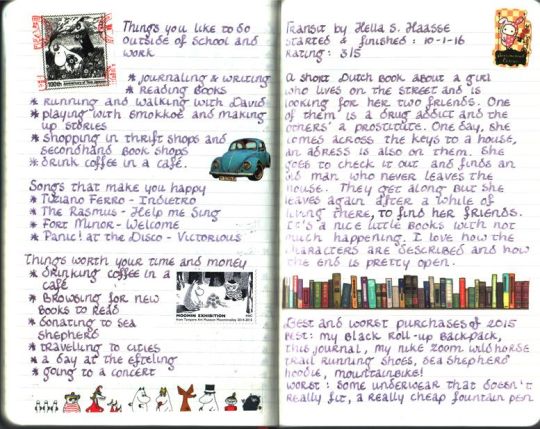 100th Anniversary of Tove Jansson
Things you like to do
outside of school and
work
* journaling & writing
* Reading Books
* running and walking with David
* playing with smokkoe and making
up stories
* shopping in thrift shops and
secondhand book shops
* drink coffee in a café.
Songs that make you happy
* Tiziano Ferro - Indietro
* The Rasmus - Help me Sing
* Fort Minor - Welcome
* Panic! at the Disco - Victorious
Things worth your time and money
* drinking coffee in a
café
* Browsing for new
Books to Read
* donating to sea
shepherd
* travelling to cities
* a day at the efteling
* going to a concert
MOOMIN EXHIBITION
Transit by Hella S. Haasse
started & finished : 10-1-16
Rating : 3/5
A short Dutch book about a girl
who lives on the street and is
looking for her two friends. One
of them is a drug addict and the
others' a prostitute. One day, she
comes across the keys to a house,
an adress is also on them. She
goes to check it out and finds an
old man who never leaves the
house. They get along but she
leaves again after a while of
living there, to find her friends.
It's a nice little books with not
much happening. I love how the
characters are described and how
the end is pretty open.
Best and worst purchases of 2015
Best: my black roll-up backpack,
this journal, my nike zoom wildhorse
trail running shoes, sea shepherd
hoodie, mountainbike!
worst : some underwear that doesn't
really fit, a really cheap fountain pen